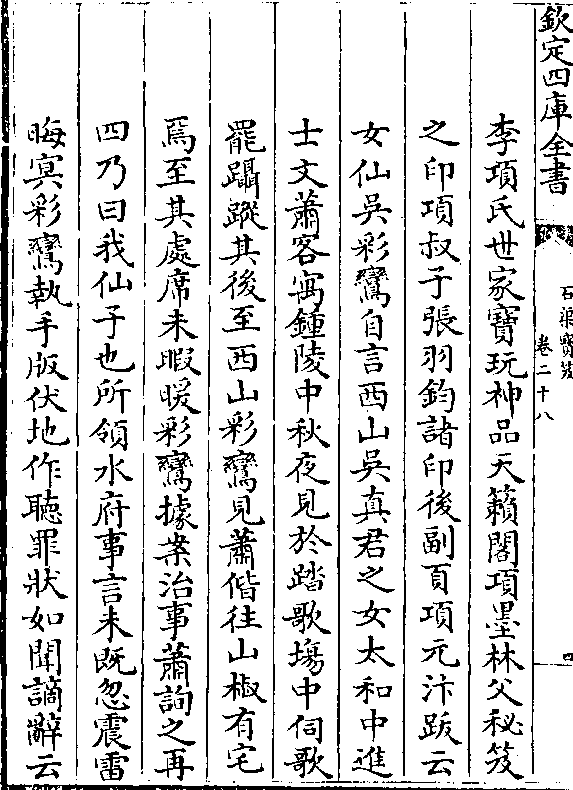 欽定四庫全書
石渠寳笈
卷二十八
四
李項氏世家寶玩神品天籟閣項墨林父秘笈
之印項叔子張羽鈞諸印後副頁項元汴跋云
女仙吳彩鸞自言西山吳真君之女太和中進
士文蕭客寓鍾陵中秋夜見於踏歌塲中伺歌
罷躡蹤其後至西山彩鸞見蕭偕往山椒有宅
焉至其處席未暇暖彩鸞據案治事蕭詢之再
四乃曰我仙子也所領水府事言未既忽震雷
晦冥彩鸞執手版伏地作聴罪狀如聞謫辭云